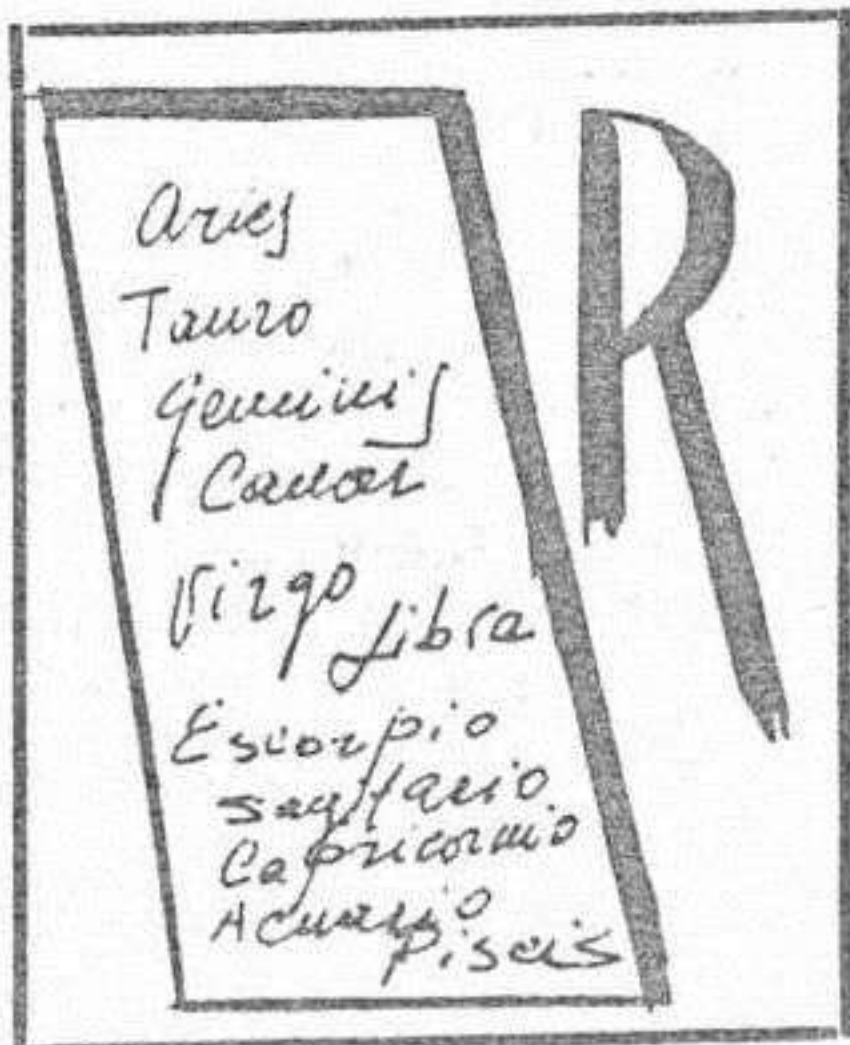 Aries
Tauro
Geminis
Cancer
Virgo
Libra
Escorpio
Sagitario
Capricornio
Acuario
Piscis
R